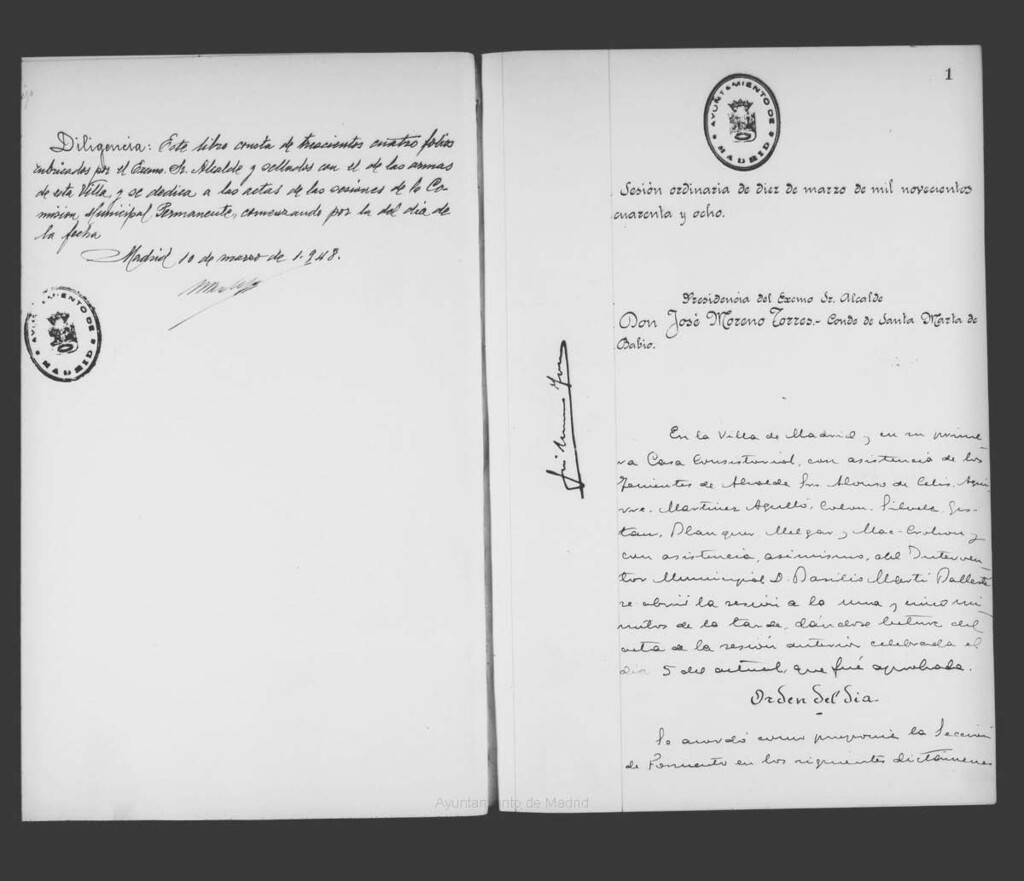 Diligencia: Este libro consta de trescientos cuatro folios
rubricados por el Excmo. Sr. Alcalde y sellados con el de las armas
de esta Villa, y se dedica a las actas de las sesiones de la Co-
misión Municipal Permanente, comenzando por la del día de
la fecha
Madrid 10 de marzo de 1.948.
AYUNTAMIENTO DE MADRID
1
AYUNTAMIENTO DE MADRID
Sesión ordinaria de diez de marzo de mil novecientos
cuarenta y ocho.
Presidencia del Excmo Sr. Alcalde
Don José Moreno Torres.- Conde de Santa Marta de
Babio.
En la Villa de Madrid y en su prime-
ra Casa Consistorial, con asistencia de los
Tenientes de Alcalde Srs. Alonso de Celis, Agui-
rre, Martinez Agulló, Colom, Silvela, Gis-
tau, Planquer Melgar y Mac-Crohon y
con asistencia, asimismo, del Interven-
tor Municipal D. Basilio Martí Ballesté
se abrió la sesión a la una y cinco mi-
nutos de la tarde, dándose lectura del
acta de la sesión anterior celebrada el
día 5 del actual, que fué aprobada.
Orden del día.
Se acordó como propone la Sección
de Fomento en los siguientes dictámenes
Ayuntamiento de Madrid